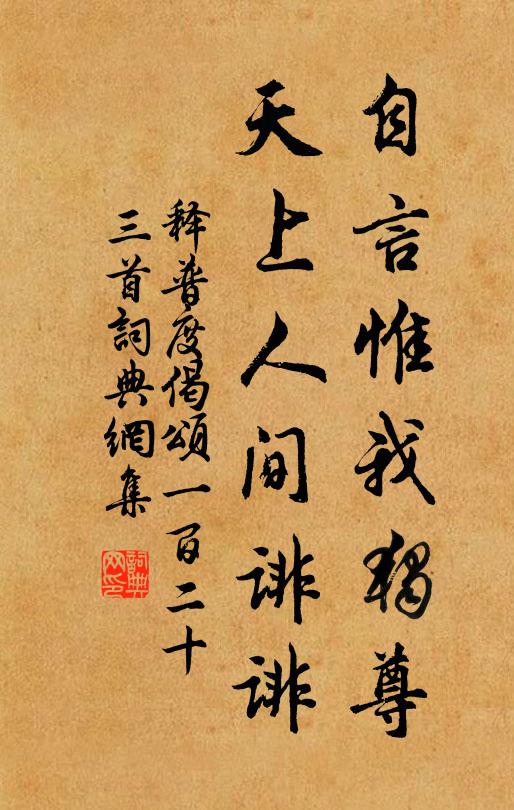 自言惟我独尊
天上人间诽诽
释普度偈頌一百二十
三首詞典網集
詞典網印